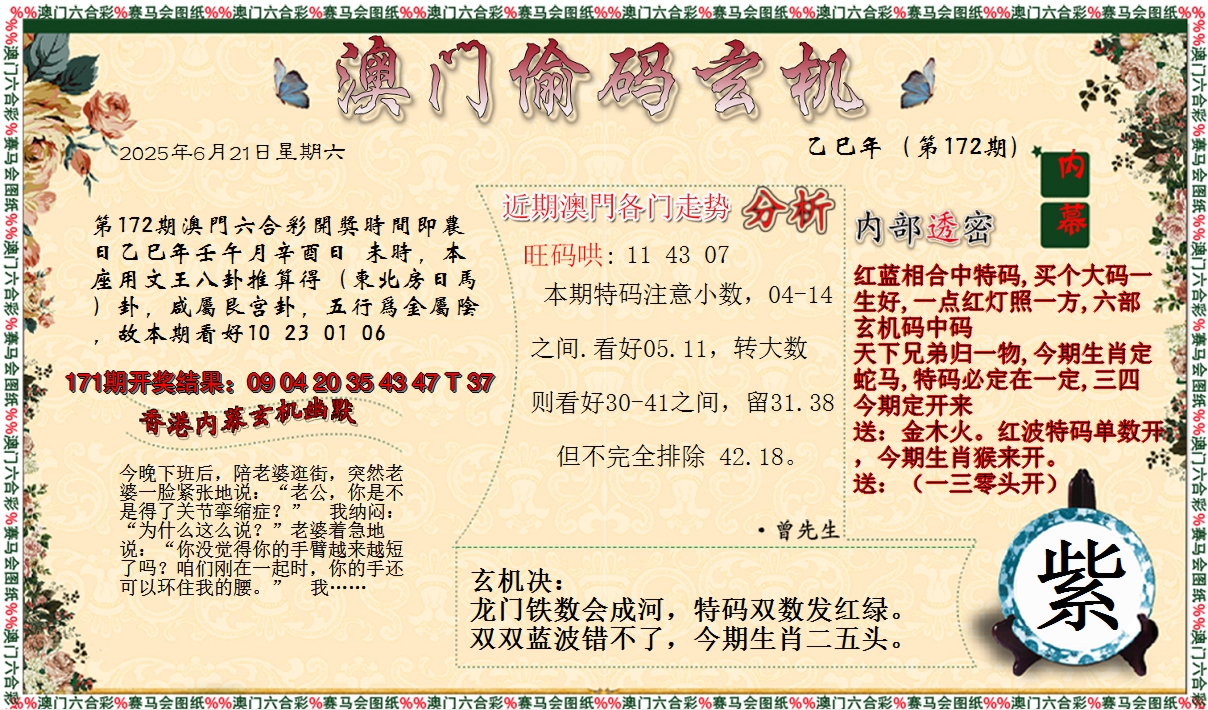 %%澳门六合彩%赛马会图纸%%澳门六合彩%赛马会图纸%%澳门六合彩%赛马会图纸%%澳门六合彩%赛马会图纸%%澳门六合彩%赛马会图纸%%澳门六合彩%赛马会图纸%%
澳门偷码玄机
2025年6月21日星期六
乙巳年（第172期）
第172期澳門六合彩開獎時間即農
日乙巳年壬午月辛酉日 未時，本
座用文王八卦推算得（東北房日馬
）卦，咸屬艮宫卦，五行爲金屬陰
，故本期看好10 23 01 06
171期开奖结果：09 04 20 35 43 47 T 37
香港内幕玄机幽默
今晚下班后，陪老婆逛街，突然老
婆一脸紧张地说：“老公，你是不
是得了关节挛缩症？” 我纳闷：
“为什么这么说？”老婆着急地
说：“你没觉得你的手臂越来越短
了吗？咱们刚在一起时，你的手还
可以环住我的腰。” 我……
近期澳門各门走势 分析
旺码哄: 11 43 07
本期特码注意小数，04-14
之间.看好05.11，转大数
则看好30-41之间，留31.38
但不完全排除 42.18。
·曾先生
玄机决：
龙门铁数会成河，特码双数发红绿。
双双蓝波错不了，今期生肖二五头。
内幕
内部透密
红蓝相合中特码,买个大码一
生好,一点红灯照一方,六部
玄机码中码
天下兄弟归一物,今期生肖定
蛇马,特码必定在一定,三四
今期定开来
送：金木火。红波特码单数开
，今期生肖猴来开。
送：（一三零头开）
紫
%%澳门六合彩%赛马会图纸%%澳门六合彩%赛马会图纸%%澳门六合彩%赛马会图纸%%澳门六合彩%赛马会图纸%%澳门六合彩%赛马会图纸%%澳门六合彩%赛马会图纸%%